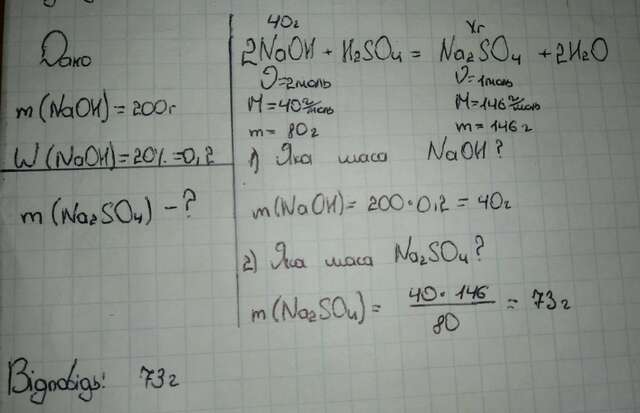 Дано
m(NaOH)=200г
W(NaOH)=20%=0,2
m(Na₂SO₄)-?
40г Xг
2NaOH + H₂SO₄ = Na₂SO₄ + 2H₂O
ν=2моль ν=1моль
M=40г/моль M=146г/моль
m=80г m=146г
1) Яка маса NaOH?
m(NaOH)=200·0,2=40г
2) Яка маса Na₂SO₄?
m(Na₂SO₄)= 40·146/80 = 73г
Відповідь: 73г